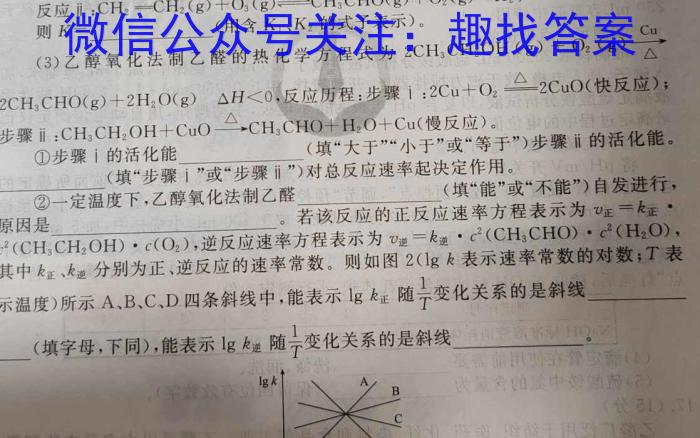 反应ⅱ:CH₂═CH₂(g)+O₃(g)
则K
(用含K
式子表示)。
微信公众号关注：趣找答案
(3)乙醇氧化法制乙醛的热化学方程式为2CH₃
Cu
△
2CH₃CHO(g)+2H₂O(g) ΔH<0,反应历程:步骤ⅰ:2Cu+O₂ ═△═ 2CuO(快反应);
步骤ⅱ:CH₃CH₂OH+CuO —△→ CH₃CHO+H₂O+Cu(慢反应)。
①步骤ⅰ的活化能________(填“大于”“小于”或“等于”)步骤ⅱ的活化能。
________(填“步骤ⅰ”或“步骤ⅱ”)对总反应速率起决定作用。
②一定温度下,乙醇氧化法制乙醛________(填“能”或“不能”)自发进行,
原因是________。若该反应的正反应速率方程表示为v正=k正·
c²(CH₃CH₂OH)·c(O₂),逆反应速率方程表示为v逆=k逆·c²(CH₃CHO)·c²(H₂O),
其中k正、k逆分别为正、逆反应的速率常数。则如图2(lg k表示速率常数的对数;T表
示温度)所示A、B、C、D四条斜线中,能表示lg k正随1/T变化关系的是斜线________
____(填字母,下同),能表示lg k逆随1/T变化关系的是斜线________。
lg k
A
B
C